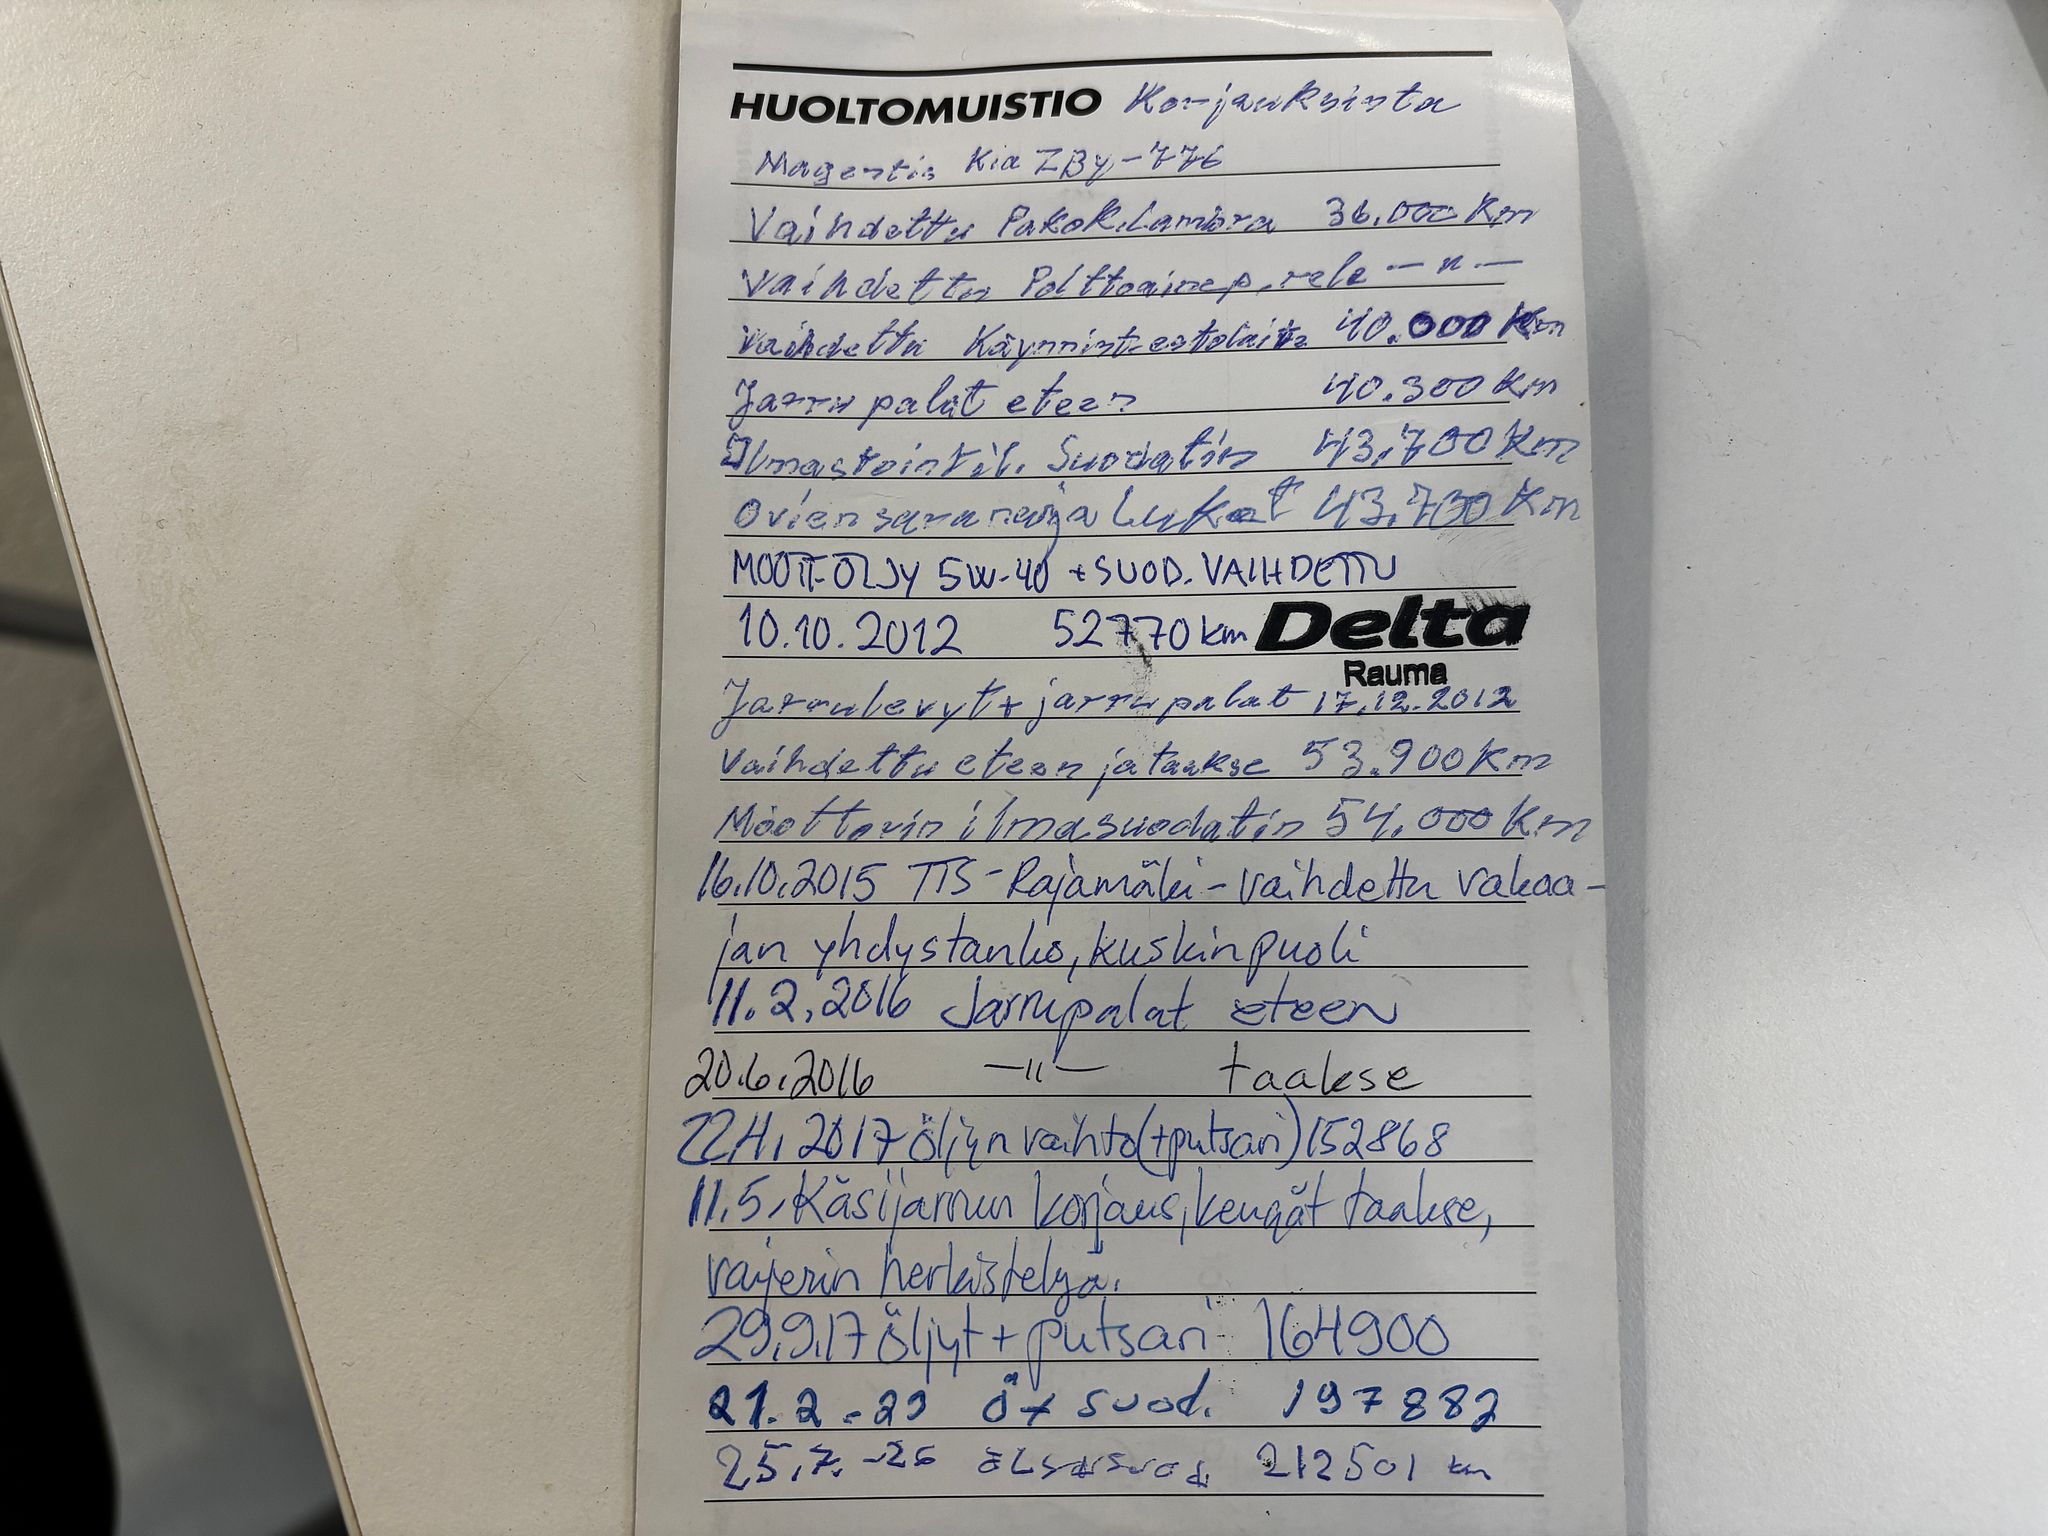 HUOLTOMUISTIO Korjauksista
Magentis Kia ZBY-776
Vaihdettu Pakok.Lambra 36.000 Km
Vaihdettu Polttoainep.rele —"—
Vaihdettu Käynnist.estolaite 40.000 Km
Jarru palat eteen 40.300 Km
Ilmastointil. Suodatin 43.700 Km
Ovien saranat ja Lukot 43.730 Km
MOOTT-ÖLJY 5W-40 + SUOD. VAIHDETTU
10.10.2012 52770 km Delta
Rauma
Jarrulevyt + jarrupalat 17.12.2012
Vaihdettu eteen ja taakse 53.900 Km
Moottorin ilmasuodatin 54.000 Km
16.10.2015 TTS-Rajamäki-vaihdettu vakaa-
jan yhdystanko, kuskinpuoli
11.2.2016 Jarrupalat eteen
20.6.2016 —"— taakse
22.4.2017 öljyn vaihto (+putsari) 152868
11.5. Käsijarrun korjaus, kengät taakse,
vaijerin herkistelyä.
29.9.17 öljyt + putsari 164900
21.2.-23 Ö+ suod. 197882
25.7.-26 212501 km